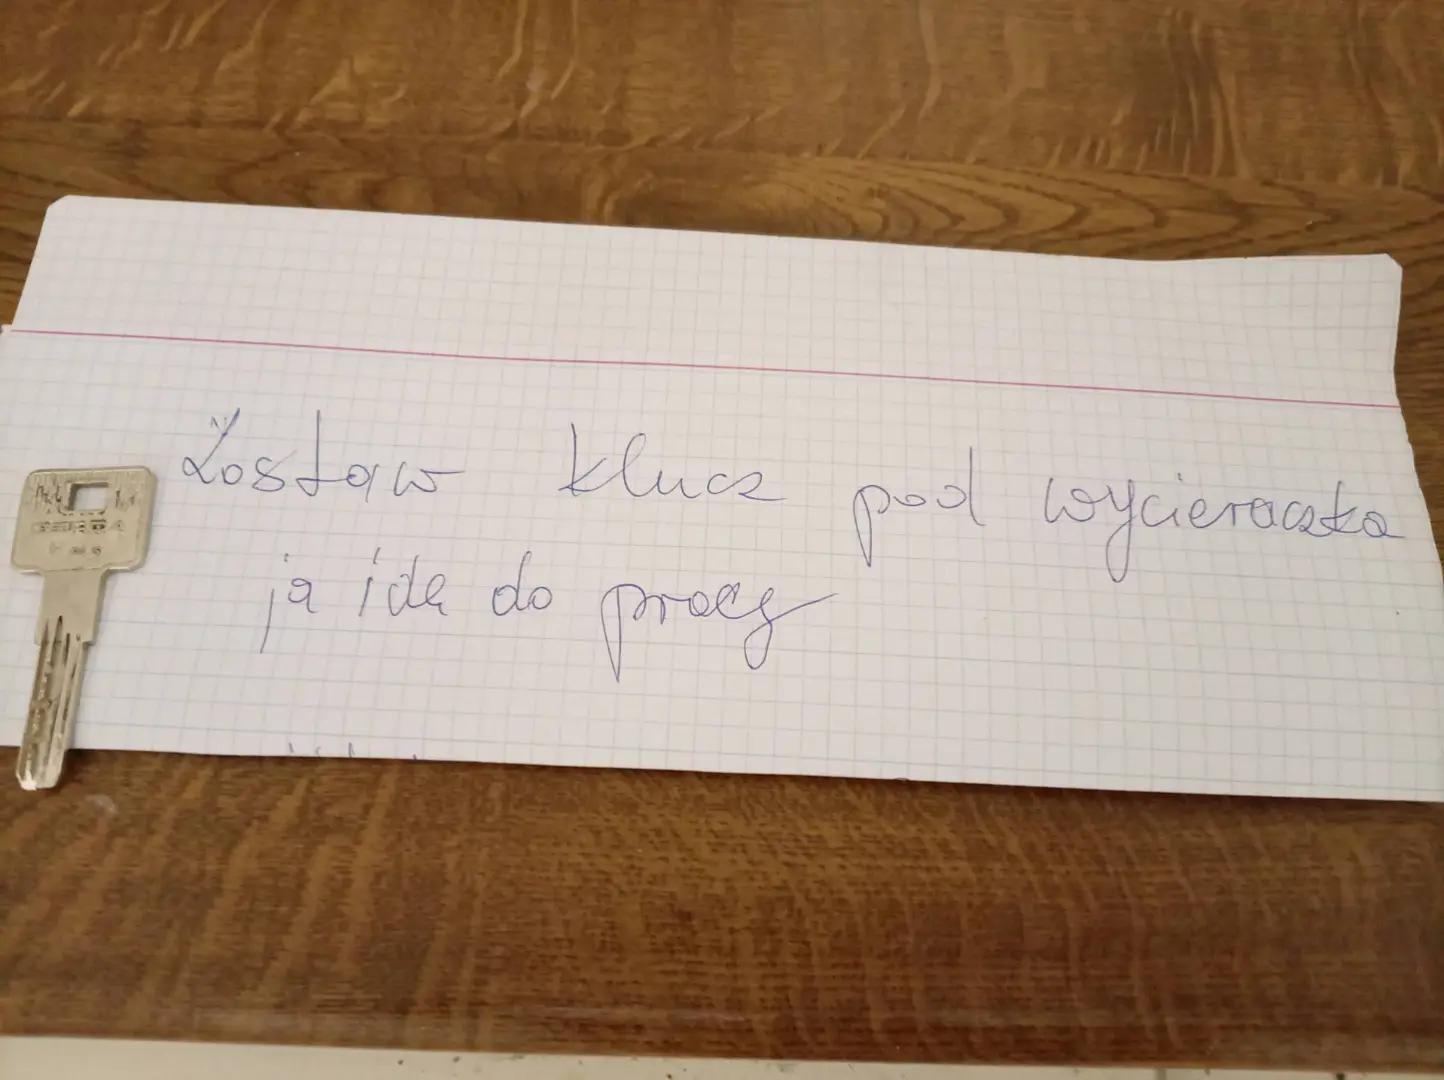 Zostaw klucz pod wycieraczka
ja ide do pracy
GERDA